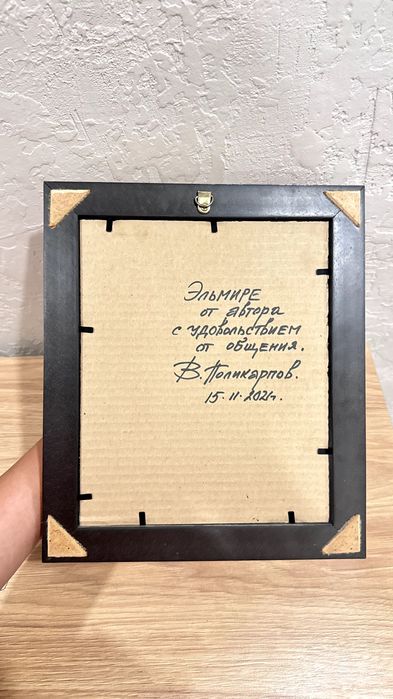 Эльмире
от автора
с удовольствием
от общения.
В. Поликарпов.
15.11.2021г.